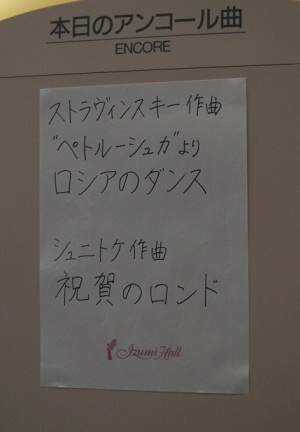 本日のアンコール曲
ENCORE
ストラヴィンスキー作曲
"ペトルーシュガ"より
ロシアのダンス
シュニトケ作曲
祝賀のロンド
Izumi Hall